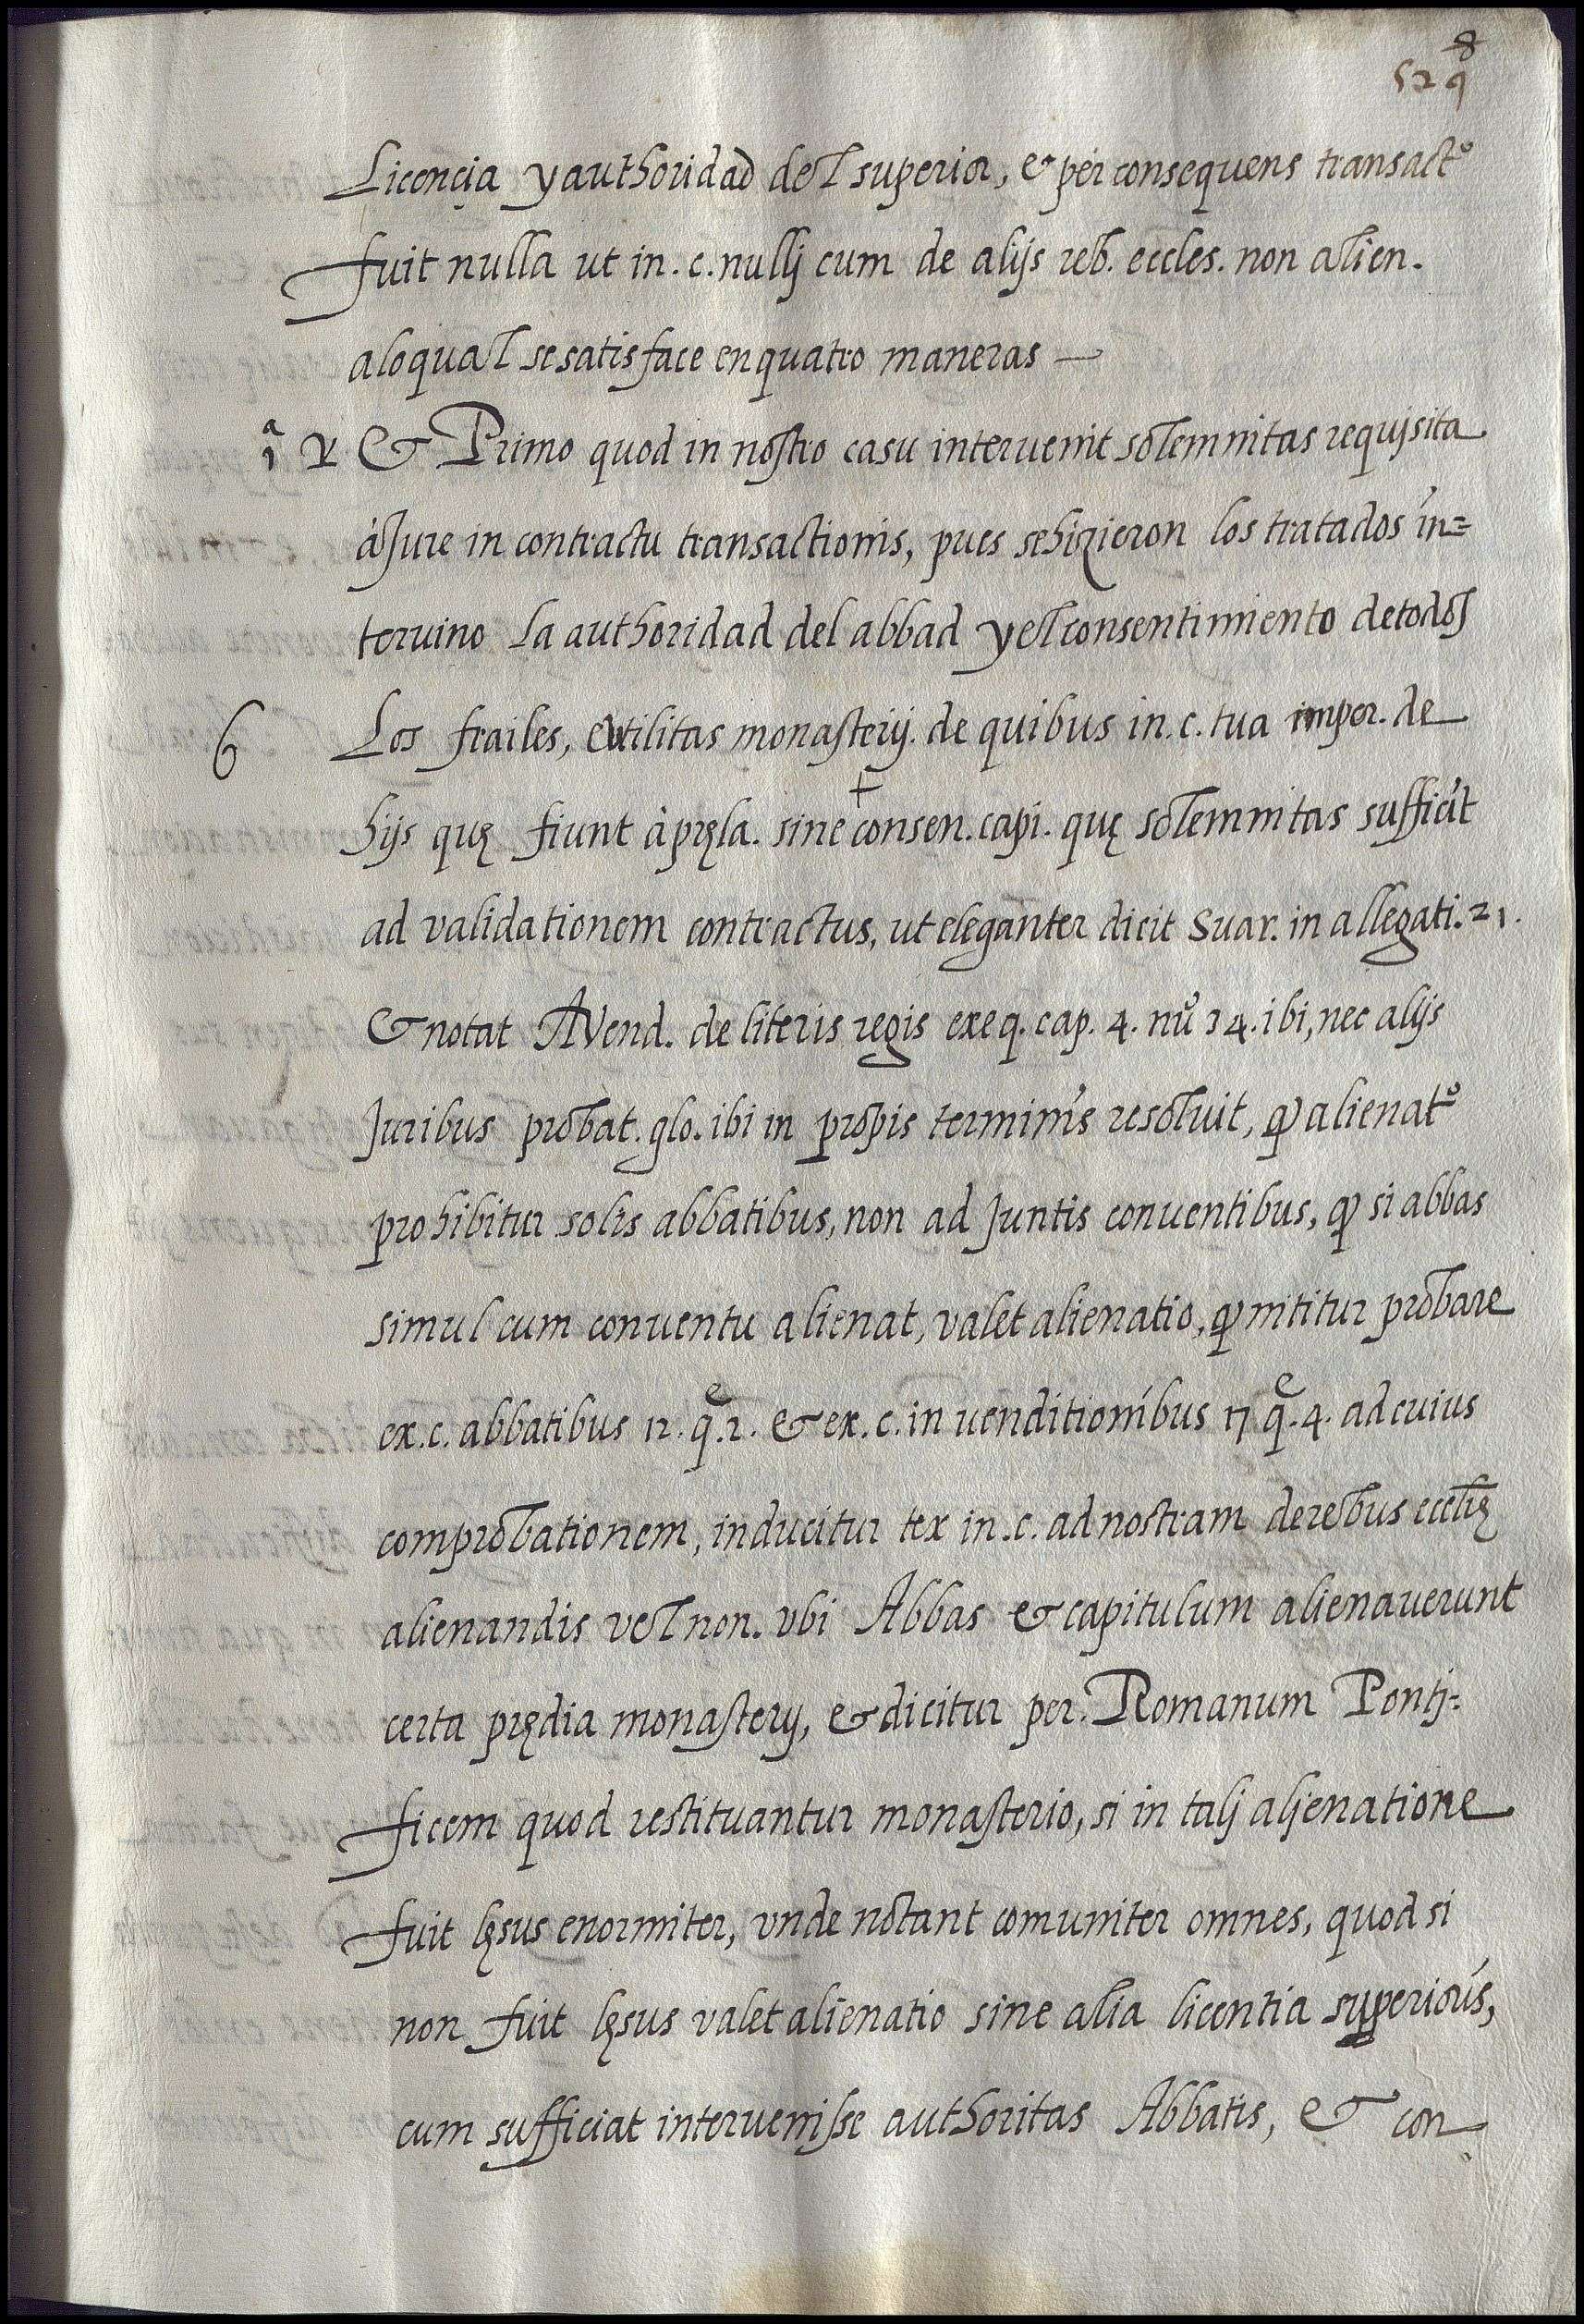 8
529
Licençia y authoridad del superior, & per consequens transactº
fuit nulla ut in. c. nullj cum de alijs reb. eccles. non alien.
alo qual se satisface en quatro maneras —
1ª R & Primo quod in nostro casu interuenit solemnitas requisita
à Jure in contractu transactionis, pues se hizieron los tratados in=
teruino La authoridad del abbad y el consentimiento de todos
6 Los frailes, & utilitas monasterij. de quibus in. c. tua nuper. de
hijs quę fiunt à pręla. sine + consen. capi. quę solemnitas sufficit
ad validationem contractus, ut eleganter dicit Suar. in allegati. 21.
& notat AVend. de literis regis exeq. cap. 4. nuº 34. ibi, nec alijs
Juribus probat. glo. ibi in propis terminis resoluit, ꝙ alienatº
prohibitur solis abbatibus, non ad Juntis conuentibus, ꝙ si abbas
simul cum conuentu alienat, valet alienatio, ꝙ nititur probare
ex. c. abbatibus 12. qᵉ. 2. & ex. c. in uenditionibus 17 qᵉ. 4. ad cuius
comprobationem, inducitur tex in. c. ad nostram de rebus ecclię
alienandis vel non. vbi Abbas & capitulum alienauerunt
certa prędia monastery, & dicitur per. Romanum Pontj=
ficem quod restituantur monasterio, si in talj aljenatione
fuit lęsus enormiter, vnde notant comuniter omnes, quod si
non fuit lęsus valet alienatio sine alia licentia superioris,
cum sufficiat interuenisse authoritas Abbatis, & con